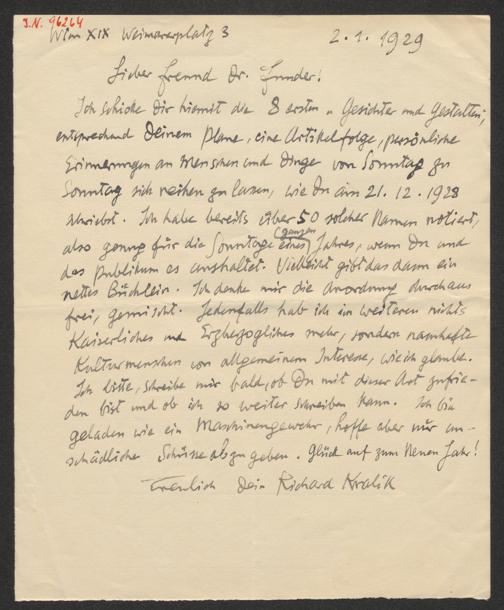 J.N. 96264
Wien XIX Weimarerplatz 3
2.1.1929
Lieber Freund Dr. Funder!
Ich schicke Dir hiemit die 8 ersten „Gesichter und Gestalten",
entsprechend Deinem Plane, eine Artikelfolge, persönliche
Erinnerungen an Menschen und Dinge von Sonntag zu
Sonntag sich reihen zu lassen, wie Du am 21.12.1928
schriebst. Ich habe bereits über 50 solcher Namen notiert,
also genug für die Sonntage eines ganzen Jahres, wenn Du und
das Publikum es aushaltet. Vielleicht gibt das dann ein
nettes Büchlein. Ich denke mir die Anordnung durchaus
frei, gemischt. Jedenfalls hab ich im weiteren nichts
Kaiserliches und Erzherzogliches mehr, sondern namhafte
Kulturmenschen von allgemeinem Interesse, wie ich glaube.
Ich bitte, schreibe mir bald, ob Du mit dieser Art zufrie-
den bist und ob ich so weiter schreiben kann. Ich bin
geladen wie ein Maschinengewehr, hoffe aber nur un-
schädliche Schüsse abzugeben. Glück auf zum Neuen Jahr!
Treulich Dein Richard Kralik